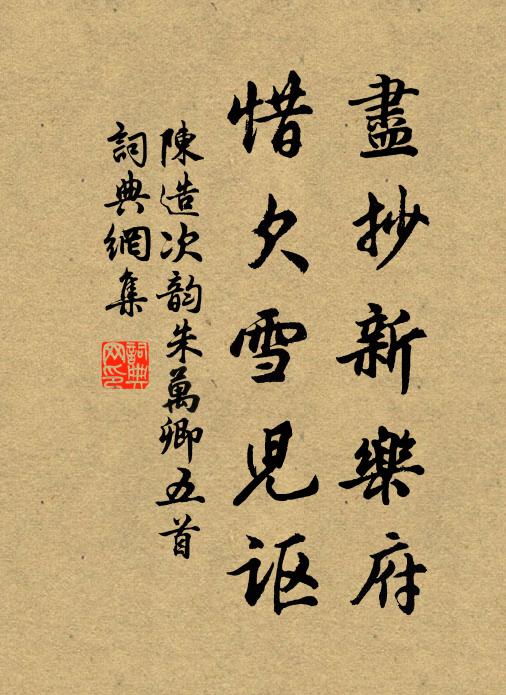 盡抄新樂府
惜欠雪兒讴
陳造次韵朱萬卿五首
詞典網集
詞典网印